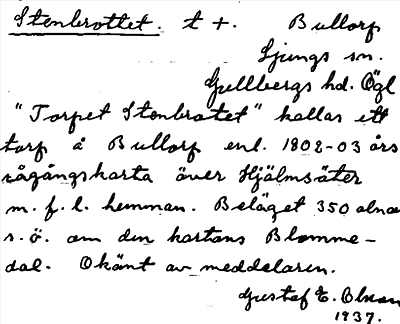 Stenbrottet. t +. Bullorp
Ljungs sn.
Gullbergs hd. Ögl
"Torpet Stenbrotet" kallas ett
torp å Bullorp enl. 1802-03 års
rågångskarta över Hjälmsäter
m. f. l. hemman. Beläget 350 alnar
s. ö. om den kartans Blomme-
dal. Okänt av meddelaren.
Gustaf E. Olson
1937.